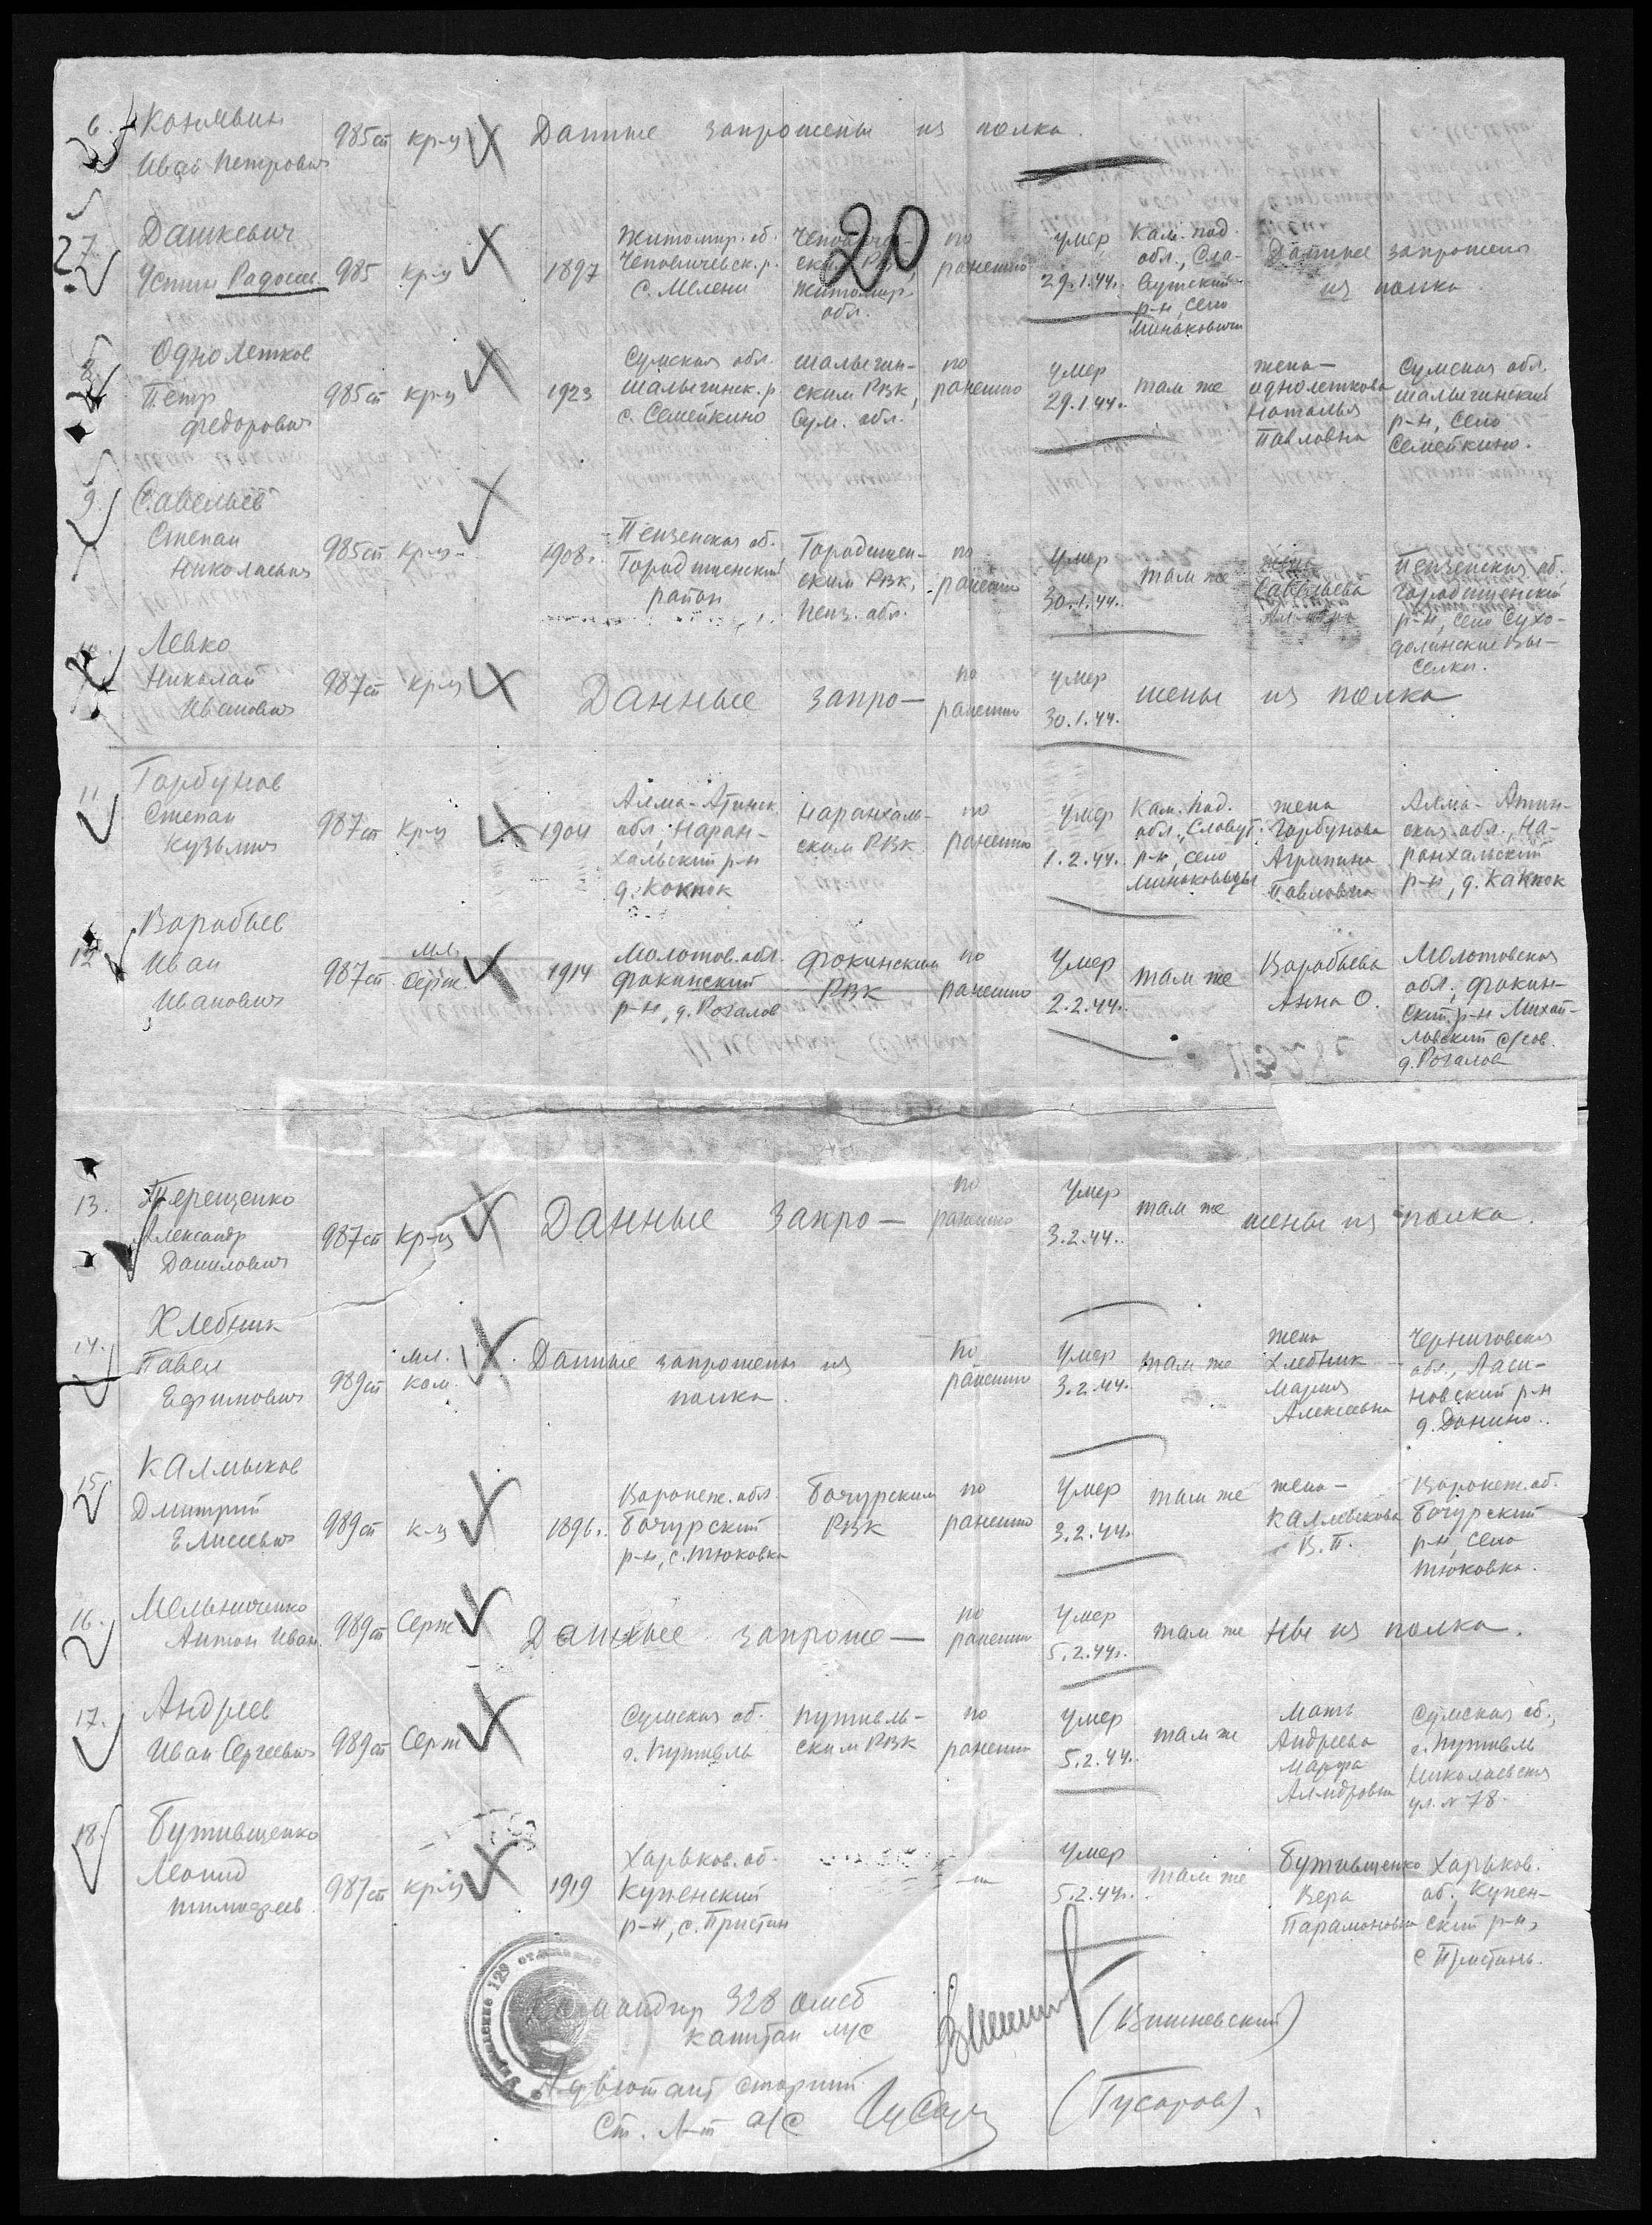 6.
Иван Петрович
985сп кр-ц Данные запрошены из полка.
7.
Дашкевич
Устин Радосл.
985 кр-ц
1897
Житомир. об.
Чеповичевск. р.
с. Мелени
Житомир.
обл.
20
по
ранению
умер
29.1.44г.
Кам. под.
обл., Сла-
вутский
р-н, село
Миньковичи
Данные запрошены
из полка
8.
Однолетков
Пётр
Федорович
985сп кр-ц
1923
Сумская обл.
Шалыгинск. р
с. Семейкино
Шалыгин-
ским РВК,
Сум. обл.
по
ранению
умер
29.1.44г.
там же
жена-
Однолеткова
Наталья
Павловна
Сумская обл.
Шалыгинский
р-н, село
Семейкино.
9.
Савельев
Степан
Николаевич
985сп кр-ц-
1908г.
Пензенская об.
Городищенский
район
Городищен-
ским РВК,
Пенз. обл.
по
ранению
умер
30.1.44г.
там же
Савельева
Пензенская об.
Городищенский
р-н, село Сухо-
долинские Вы-
селки.
10.
Левко
Николай
Иванович
987сп кр-ц
Данные запро-
по
ранению
умер
30.1.44.
шены из полка
11.
Горбунов
Степан
Кузьмич
987сп кр-ц
1904
Алма-Атинск.
обл., Наран-
хальский р-н
д. Кокпок
Наранхаль-
ским РВК
по
ранению
умер
1.2.44г.
Кам. Под.
обл., Славут.
р-н, село
Миньковцы
жена
Горбунова
Агрипина
Павловна
Алма-Атин-
ская обл., На-
ранхальский
р-н, д. Какпок
12
Воробьев
Иван
Иванович
987сп
мл.
Серж.
1914
Молотов. обл.
Фокинский
р-н, д. Рогалов
Фокинским
РВК
по
ранению
Умер
2.2.44г.
там же
Воробьева
Анна О.
Молотовская
обл., Фокин-
ский р-н Михай-
ловский с/сов.
д. Рогалов
13.
Терещенко
Александр
Данилович
987сп кр-ц
Данные запро-
по
ранению
Умер
3.2.44г.
там же
шены из полка.
14.
Хлебник
Павел
Ефимович
989сп
мл.
ком.
Данные запрошены из
полка.
по
ранению
Умер
3.2.44г.
там же
жена
Хлебник
Мария
Алексеевна
Черниговская
обл., Лоси-
новский р-н
д. Данино.
15.
Калмыков
Дмитрий
Елисеевич
989сп к-ц
1896г.
Воронеж. обл.
Бочурский
р-н, с. Тюковка
Бочурским
РВК
по
ранению
Умер
3.2.44г.
там же
жена-
Калмыкова
В.П.
Воронеж. об.
Бочурский
р-н, село
Тюковка.
16.
Мельниченко
Антон Иван.
989сп Серж
Данные запроше-
по
ранению
Умер
5.2.44г.
там же
ны из полка.
17.
Андреев
Иван Сергеевич
989сп Серж
Сумская об.
г. Путивль
Путивль-
ским РВК
по
ранению
умер
5.2.44г.
там же
Мать
Андреева
Марфа
Сумская об.,
г. Путивль
Николаевская
ул. №78.
18.
Бутивщенко
Леонид
Тимофеев.
987сп кр-ц
1919
Харьков. об.
Купенский
р-н, с. Пристан
-"-
Умер
5.2.44г.
там же
Бутивщенко
Вера
Парамоновна
Харьков.
об., Купен-
ский р-н,
с Пристань.
Командир 328 омсб
капитан м/с
(Вишневский)
Адъютант старший
Ст. Л-т а/с
(Гусаров).